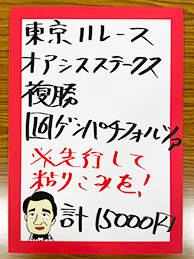 東京11レース
オアシスステークス
複勝
16ゲンパチフォルツァ
※先行して
粘りこみを!
計15000円